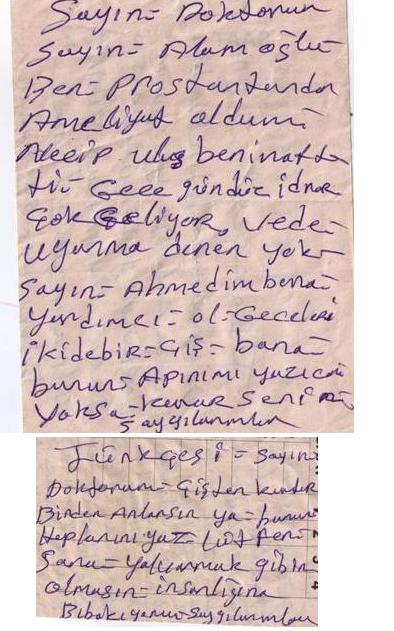 Sayın = Doktorum
Sayın = Alam oğlu
Ben = Prostantandan
Ameliyat oldum
Necip uluş beni
tti Gece gündüz idrar
çok Geliyor, vede =
uyuma denen yok =
Sayın = Ahmedim bana =
yardımcı = ol = Geceleri
ikidebir = Çiş = bana =
bunun = Apınımı
yoksa =
saygılarımla
Türkçesi = Sayın
Doktorum = Çişten kurtar
Birden Anlarsın ya = bunun
Heplarını yaz = Lütfen =
Sana = yalvarmak gibin
olmasın = insanlığına
Bibakıyanu = saygılarımla